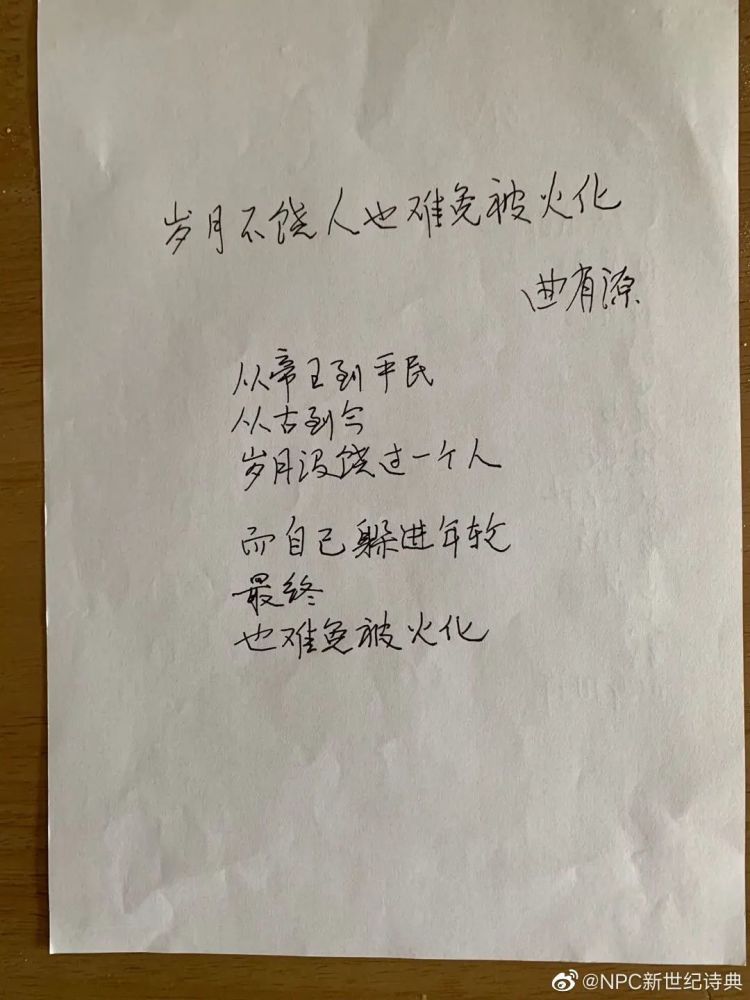 岁月不饶人也难免被火化
曲有源
从帝王到平民
从古到今
岁月没饶过一个人
而自己躲进年轮
最终
也难免被火化
@NPC新世纪诗典